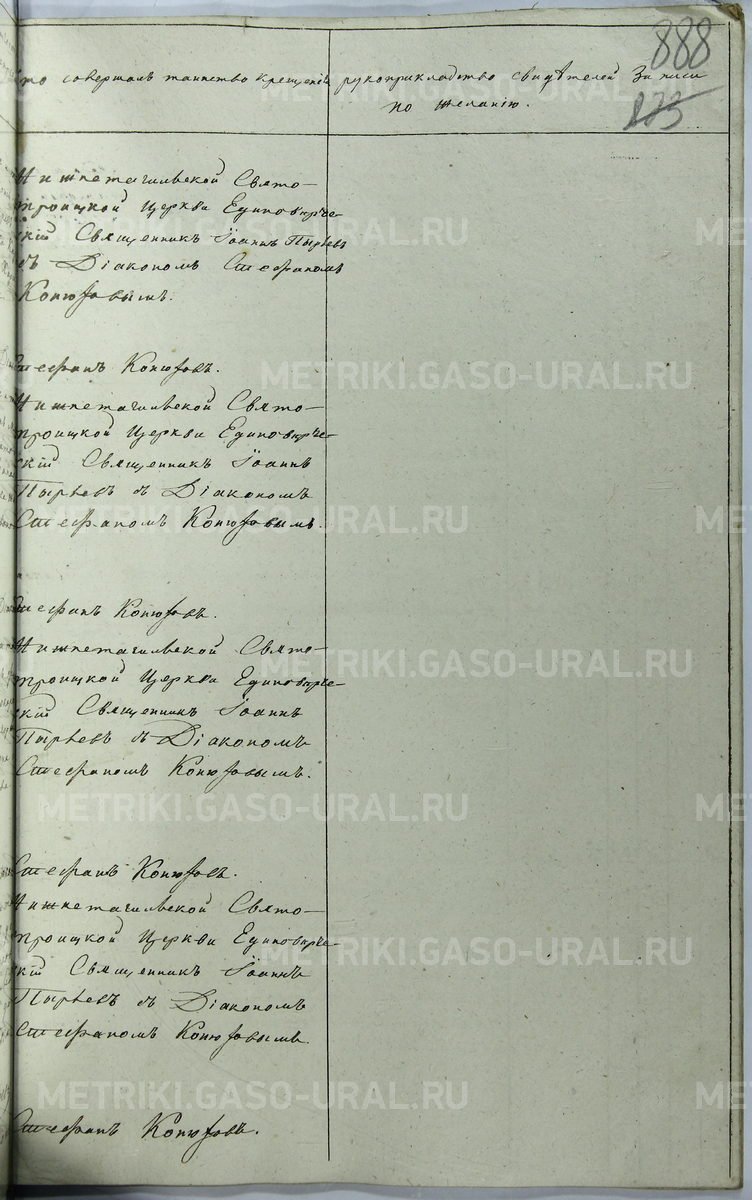 888
Кто совершалъ таинство крещенія
рукоприкладство свидѣтелей записи
по желанію.
Нижнетагильской Свято-
троицкой Церкви Единовѣрче-
скій Священникъ Іоаннъ Пырьевъ
съ Діакономъ Стефаномъ
Конюховымъ.
Стефанъ Конюховъ.
Нижнетагильской Свято-
троицкой Церкви Единовѣрче-
скій Священникъ Іоаннъ
Пырьевъ съ Діакономъ
Стефаномъ Конюховымъ.
Стефанъ Конюховъ.
Нижнетагильской Свято-
троицкой Церкви Единовѣрче-
скій Священникъ Іоаннъ
Пырьевъ съ Діакономъ
Стефаномъ Конюховымъ.
Стефанъ Конюховъ.
Нижнетагильской Свято-
троицкой Церкви Единовѣрче-
скій Священникъ Іоаннъ
Пырьевъ съ Діакономъ
Стефаномъ Конюховымъ.
Стефанъ Конюховъ.
METRIKI.GASO-URAL.RU